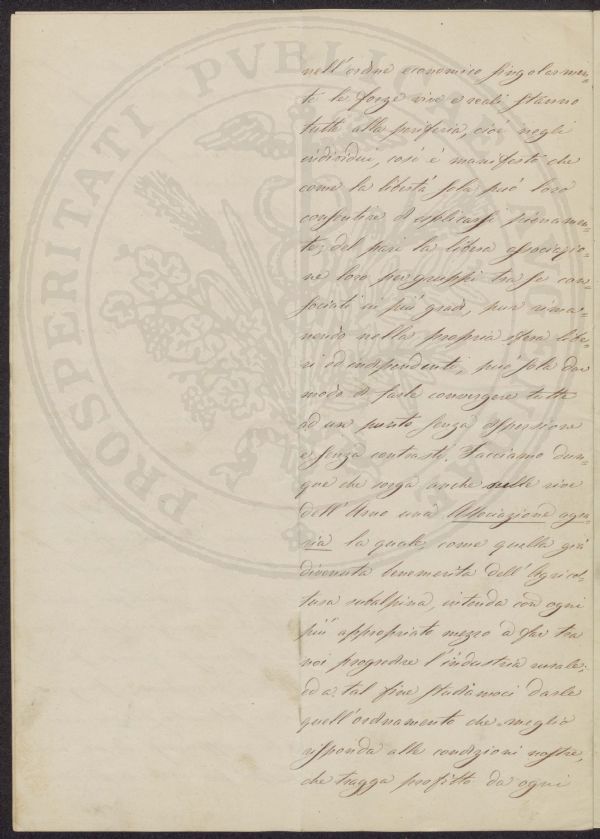 PROSPERITATI PVBLICAE
nell'ordine economico singolarmen=
te le forze vive e reali stanno
tutte alla periferia, cioè negli
individui, così è manifesto che
come la libertà sola può loro
consentire di esplicarsi pienamen=
te, del pari la libera associazio=
ne loro per gruppi tra se con=
sociati in più gradi, pur rima=
nendo nella propria sfera libe=
ri ed indipendenti, può sola dar
modo di farle convergere tutte
ad un punto senza dispersione
e senza contrasti. Facciamo dun=
que che sorga anche sulle rive
dell'Arno una Associazione agra=
ria la quale, come quella già
divenuta benemerita dell'Agricol=
tura subalpina, intenda con ogni
più appropriato mezzo a far tra
noi progredire l'industria rurale;
ed a tal fine studiamoci darle
quell'ordinamento che meglio
risponda alle condizioni nostre,
che tragga profitto da ogni